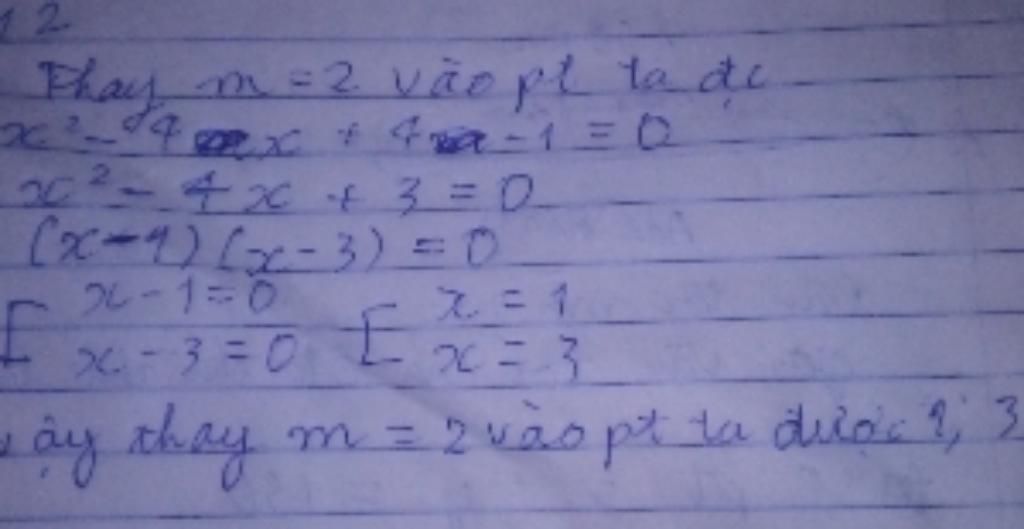 12
Thay m = 2 vào pt ta đc
x² - 4x + 4 - 1 = 0
x² - 4x + 3 = 0
(x - 1)(x - 3) = 0
[ x - 1 = 0 [ x = 1
x - 3 = 0 x = 3
vậy thay m = 2 vào pt ta được 1; 3